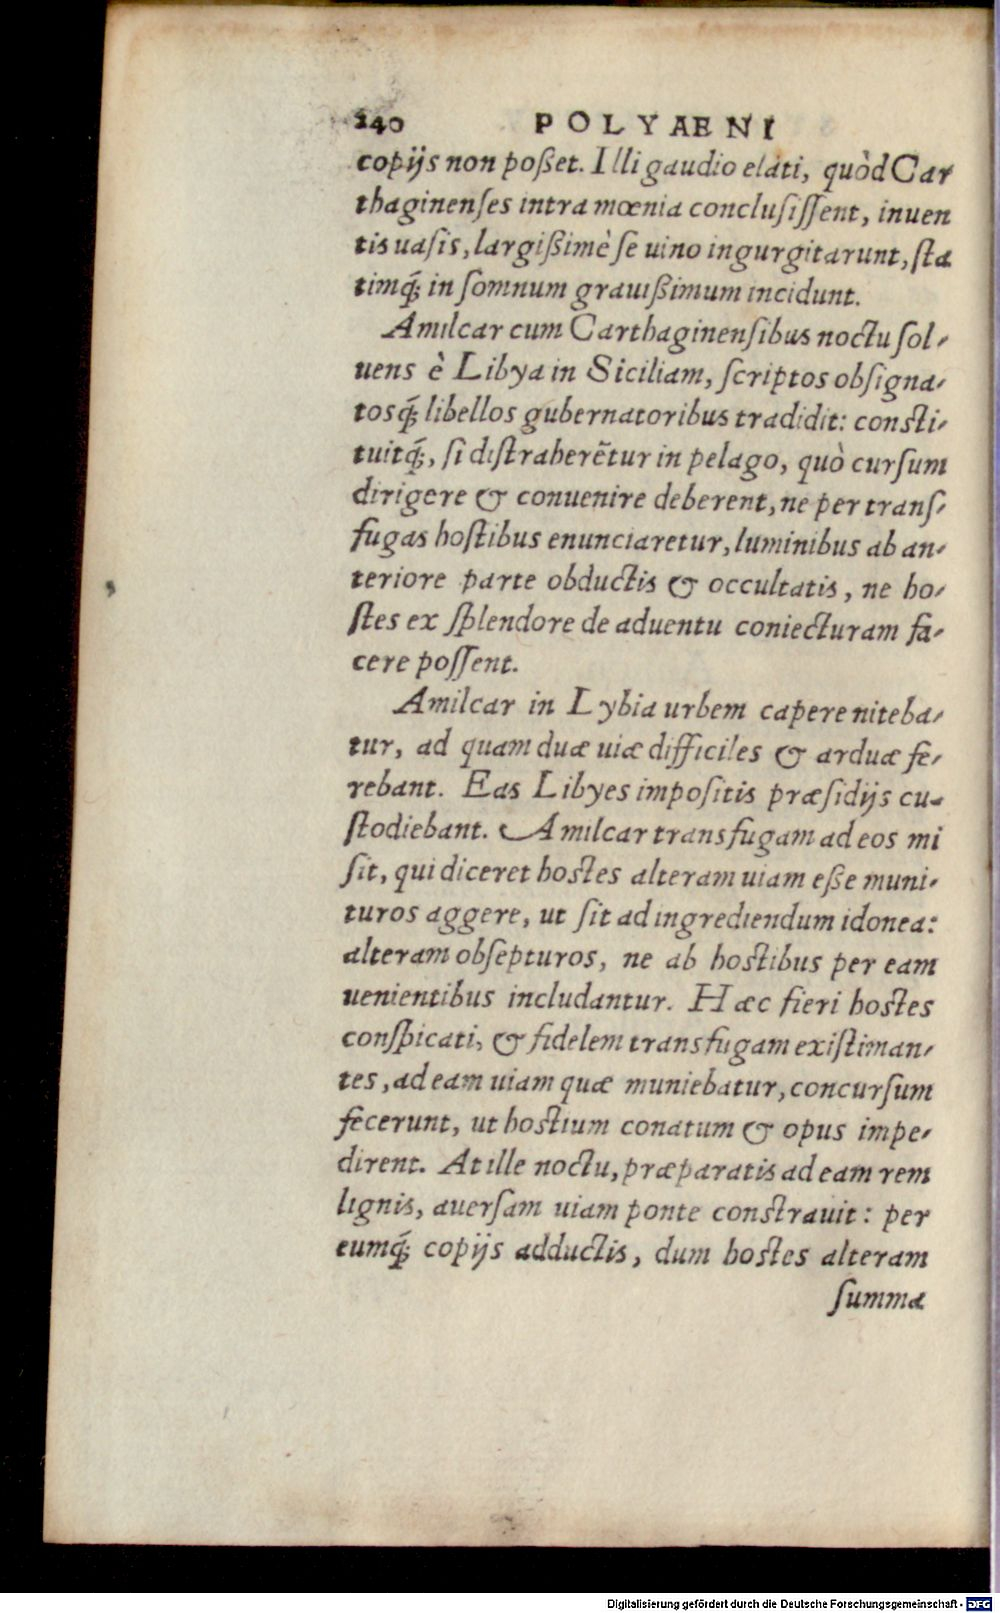 240 POLYAENI
copijs non poßet. Illi gaudio elati, quòd Car
thaginenses intra mœnia conclusissent, inuen
tis uasis, largißimè se uino ingurgitarunt, sta
timq́; in somnum grauißimum incidunt.
Amilcar cum Carthaginensibus noctu sol-
uens è Libya in Siciliam, scriptos obsigna-
tosq́; libellos gubernatoribus tradidit: consti-
tuitq́;, si distraherẽtur in pelago, quò cursum
dirigere & conuenire deberent, ne per trans-
fugas hostibus enunciaretur, luminibus ab an-
teriore parte obductis & occultatis, ne ho-
stes ex splendore de aduentu coniecturam fa-
cere possent.
Amilcar in Lybia urbem capere niteba-
tur, ad quam duæ uiæ difficiles & arduæ fe-
rebant. Eas Libyes impositis præsidijs cu-
stodiebant. Amilcar transfugam ad eos mi
sit, qui diceret hostes alteram uiam eße muni-
turos aggere, ut sit ad ingrediendum idonea:
alteram obsepturos, ne ab hostibus per eam
uenientibus includantur. Hæc fieri hostes
conspicati, & fidelem transfugam existiman-
tes, ad eam uiam quæ muniebatur, concursum
fecerunt, ut hostium conatum & opus impe-
dirent. At ille noctu, præparatis ad eam rem
lignis, auersam uiam ponte constrauit: per
eumq́; copijs adductis, dum hostes alteram
summa
Digitalisierung gefördert durch die Deutsche Forschungsgemeinschaft - DFG